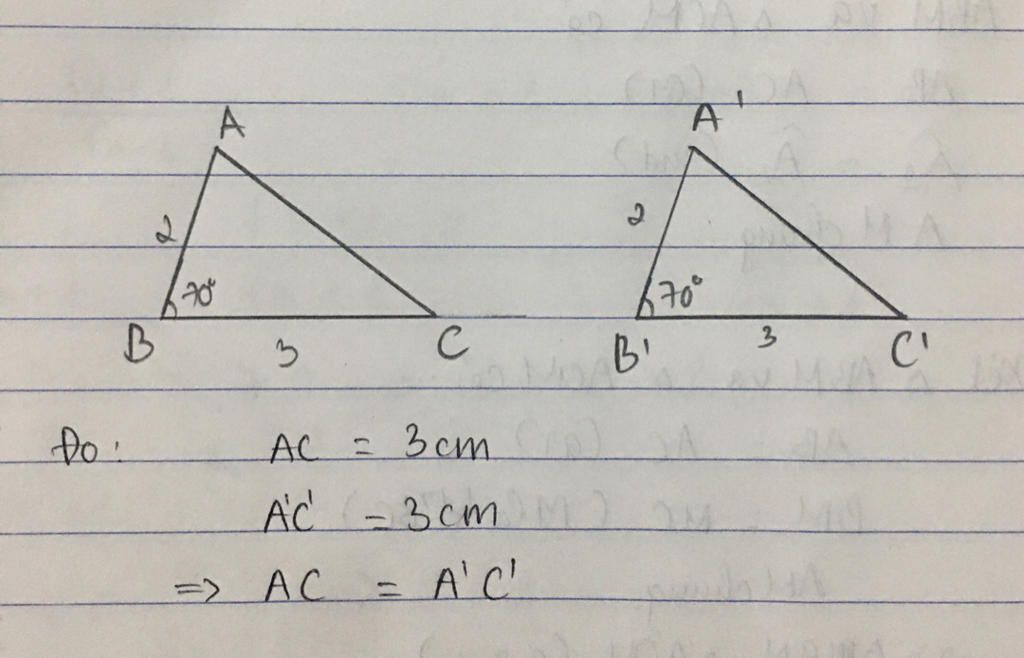 A A'
2 2
70° 70°
B 3 C B' 3 C'
Đo: AC = 3cm
A'C' = 3cm
=> AC = A'C'